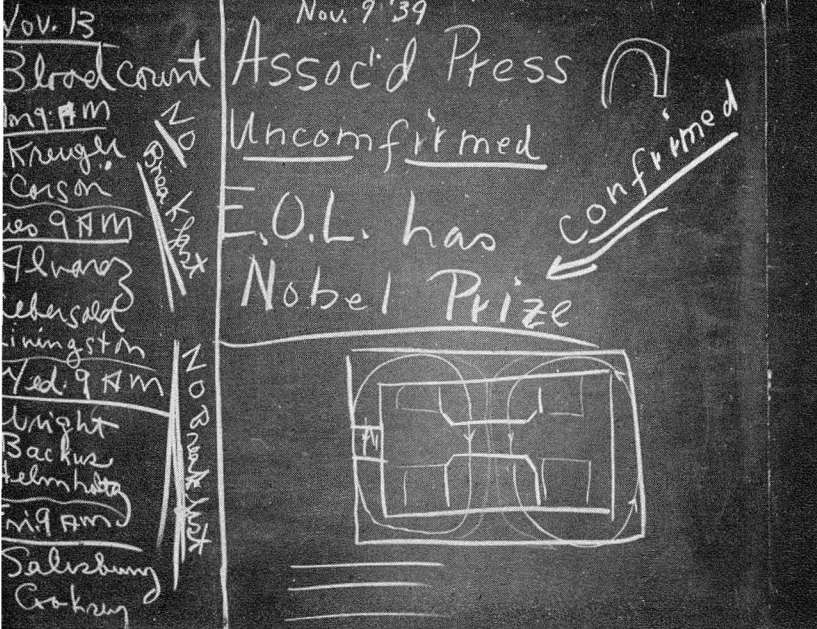 Nov. 13
Blood count
9 AM
Kreuger
Corson
9 AM
Alvarez
Aebersold
Livingston
Wed. 9 AM
Wright
Backus
Helmholtz
Fri. 9 AM
Salisbury
Cooksey
NO
Breakfast
NO Breakfast
Nov. 9 '39
Assoc'd Press
Uncomfirmed
E.O.L. has
Nobel Prize
Confirmed